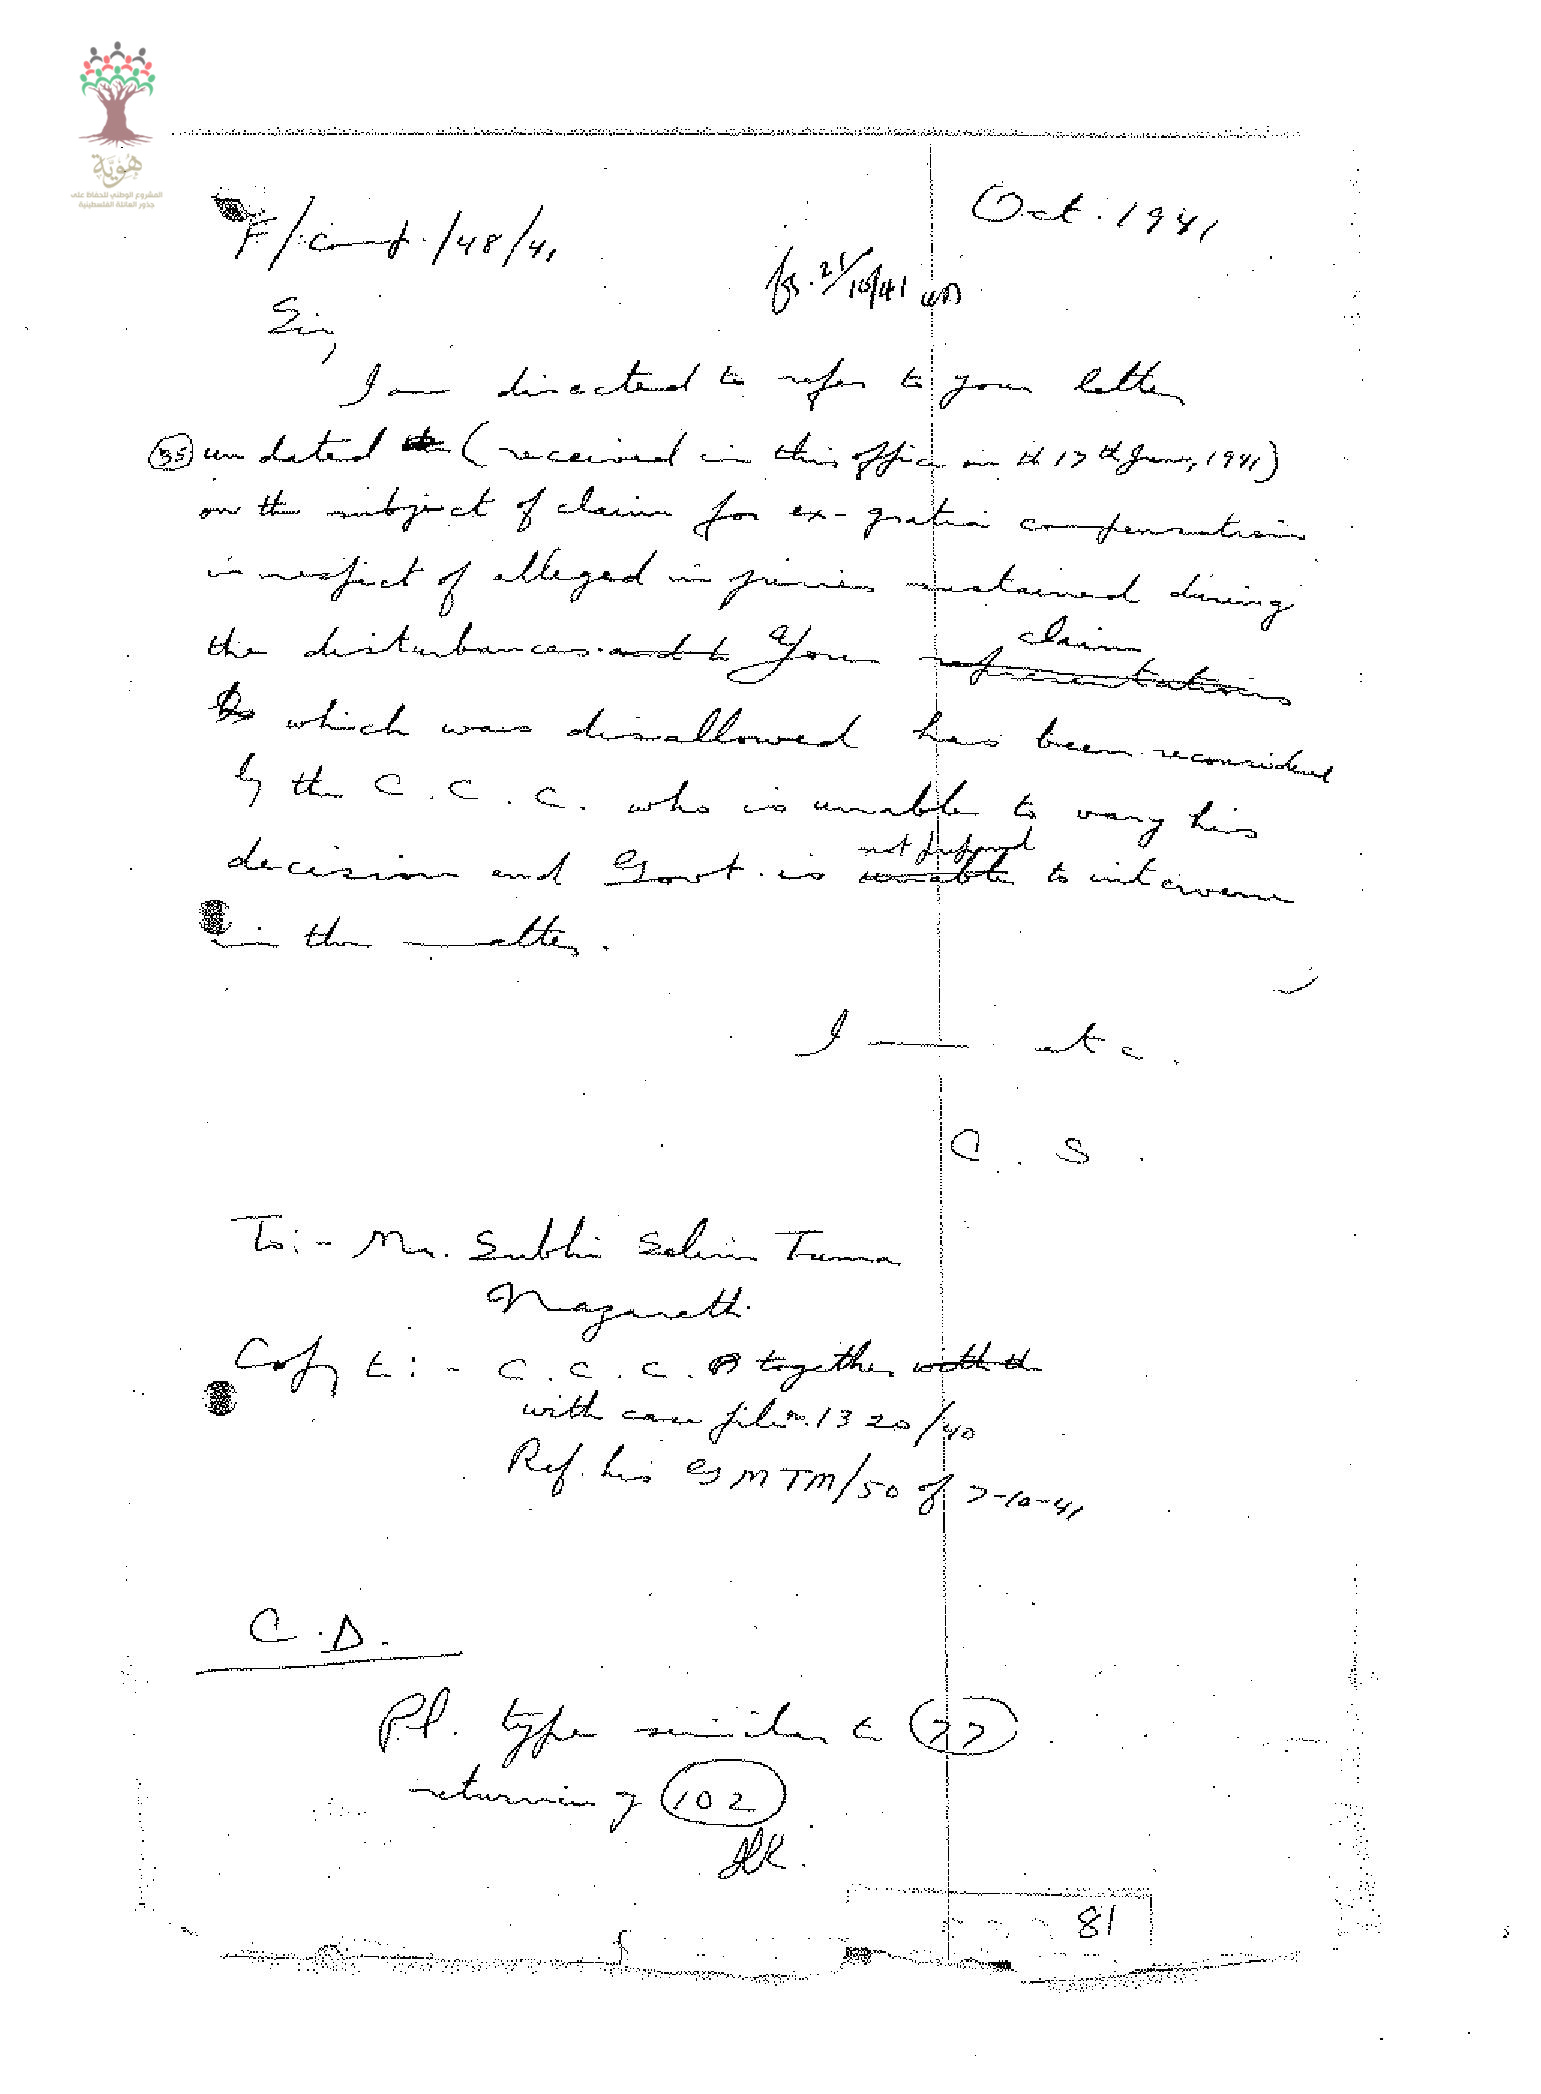 هُوِيَّة
المشروع الوطني للحفاظ على
جذور العائلة الفلسطينية
Oct. 1941
F/Comp./48/41
fs. 21/10/41
Sir,
I am directed to refer to your letter
(35) undated (received in this office on th 17th June, 1941)
on the subject of claim for ex-gratia compensation
in respect of alleged injuries sustained during
the disturbances. and to Your representations claim
which was disallowed has been reconsidered
by the C.C.C. who is unable to vary his
decision and Govt. is unable not prepared to intervene
in the matter.
I —— etc.
C. S.
To:- Mr. Subhi Selim Tuma
Nazareth.
Copy to:- C.C.C. together with th
with case file no. 1320/40
Ref. his GMTM/50 of 7-10-41
C.D.
Pl. type similar to (77)
returning (102)
81